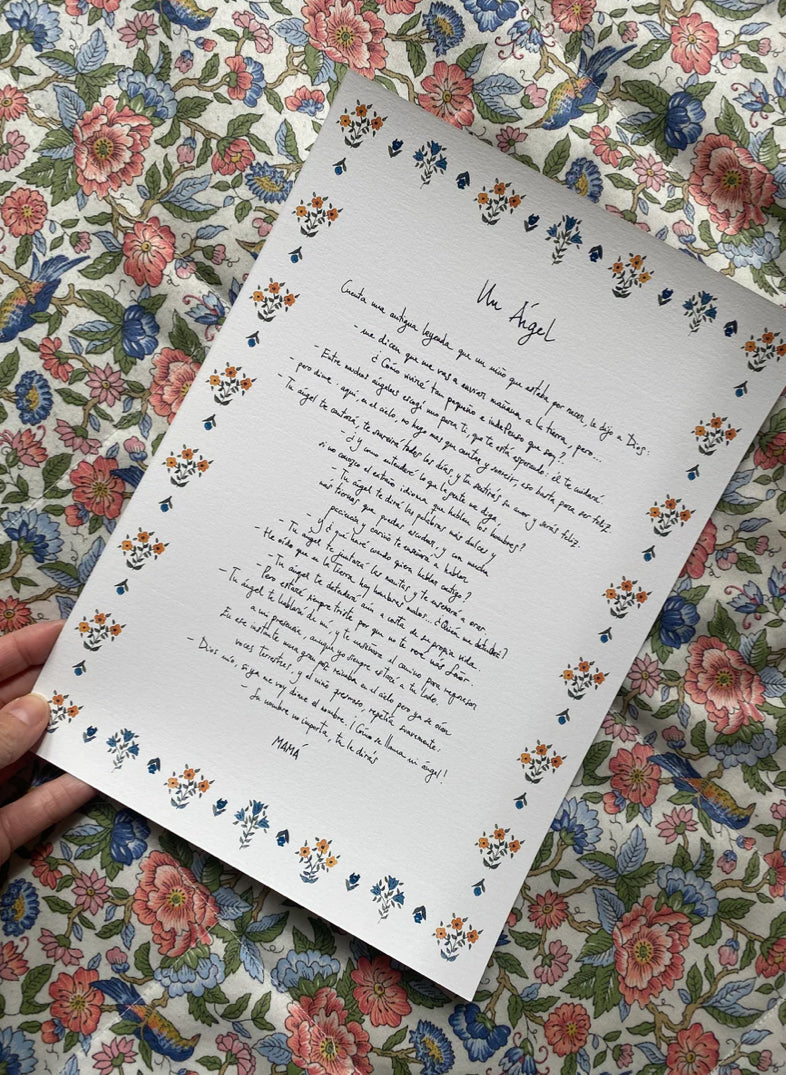 Un Ángel
Cuenta una antigua leyenda que un niño que estaba por nacer, le dijo a Dios:
- me dicen que me vas a enviar mañana a la tierra, pero...
¿Cómo viviré tan pequeño e indefenso que soy?
- Entre muchos ángeles escogí uno para ti, que te está esperando: él te cuidará.
- pero dime: aquí en el cielo, no hago más que cantar y sonreír, eso basta para ser feliz.
- Tu ángel te cantará, te sonreirá todos los días, y tú sentirás su amor y serás feliz.
- ¿Y cómo entenderé lo que la gente me diga,
si no conozco el extraño idioma que hablan los hombres?
- Tu ángel te dirá las palabras más dulces y
más tiernas que puedas escuchar, y con mucha
paciencia y cariño te enseñará a hablar
Y ¿qué haré cuando quiera hablar contigo?
- Tu ángel te juntará las manitas y te enseñará a orar
- He oído que en la Tierra hay hombres malos... ¿Quién me defenderá?
- Tu ángel te defenderá aún a costa de su propia vida.
- Pero estaré siempre triste por que no te veré más Señor.
- Tu ángel te hablará de mí, y te enseñará el camino para regresar
a mi presencia, aunque yo siempre estaré a tu lado.
En ese instante una gran paz reinaba en el cielo pero ya se oían
voces terrestres, y el niño presuroso, repetía suavemente:
- Dios mío, si ya me voy dime el nombre. ¡Cómo se llama mi ángel!
- Su nombre no importa, tú le dirás
MAMÁ